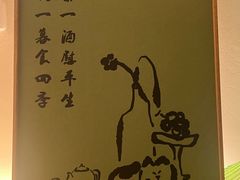 一酒慰平生
一暮食四季